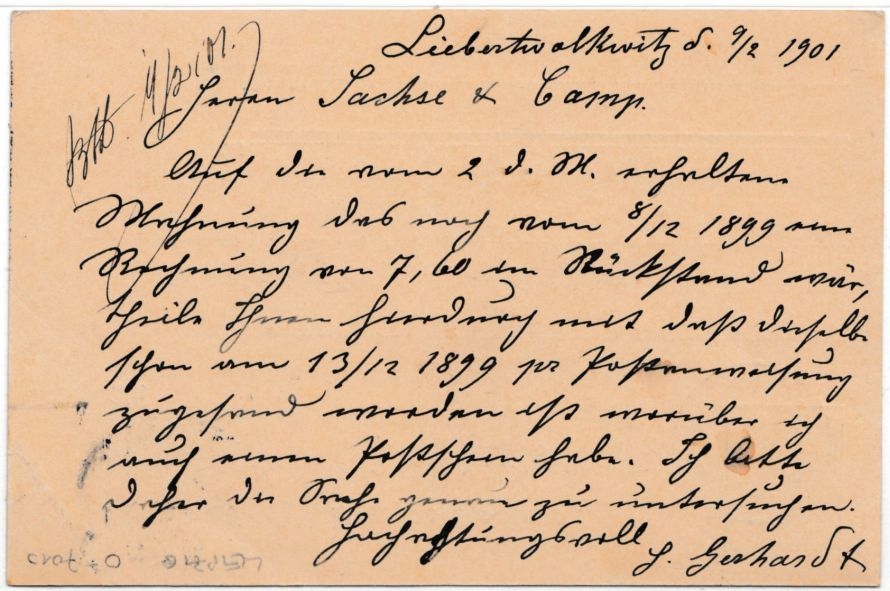 Liebertwolkwitz d. 9/2 1901
Herrn Sachse & Comp.
Auf die vom 2 d. M. erhaltene
Mahnung das noch vom 8/12 1899 eine
Rechnung von 7,60 im Rückstand wär,
theile Ihnen hierdurch mit daß dieselbe
schon am 13/12 1899 pr Postanweisung
zugesand worden ist worüber ich
auch einen Postschein habe. Ich bitte
daher die Sache genau zu untersuchen.
Hochachtungsvoll
Gerhardt